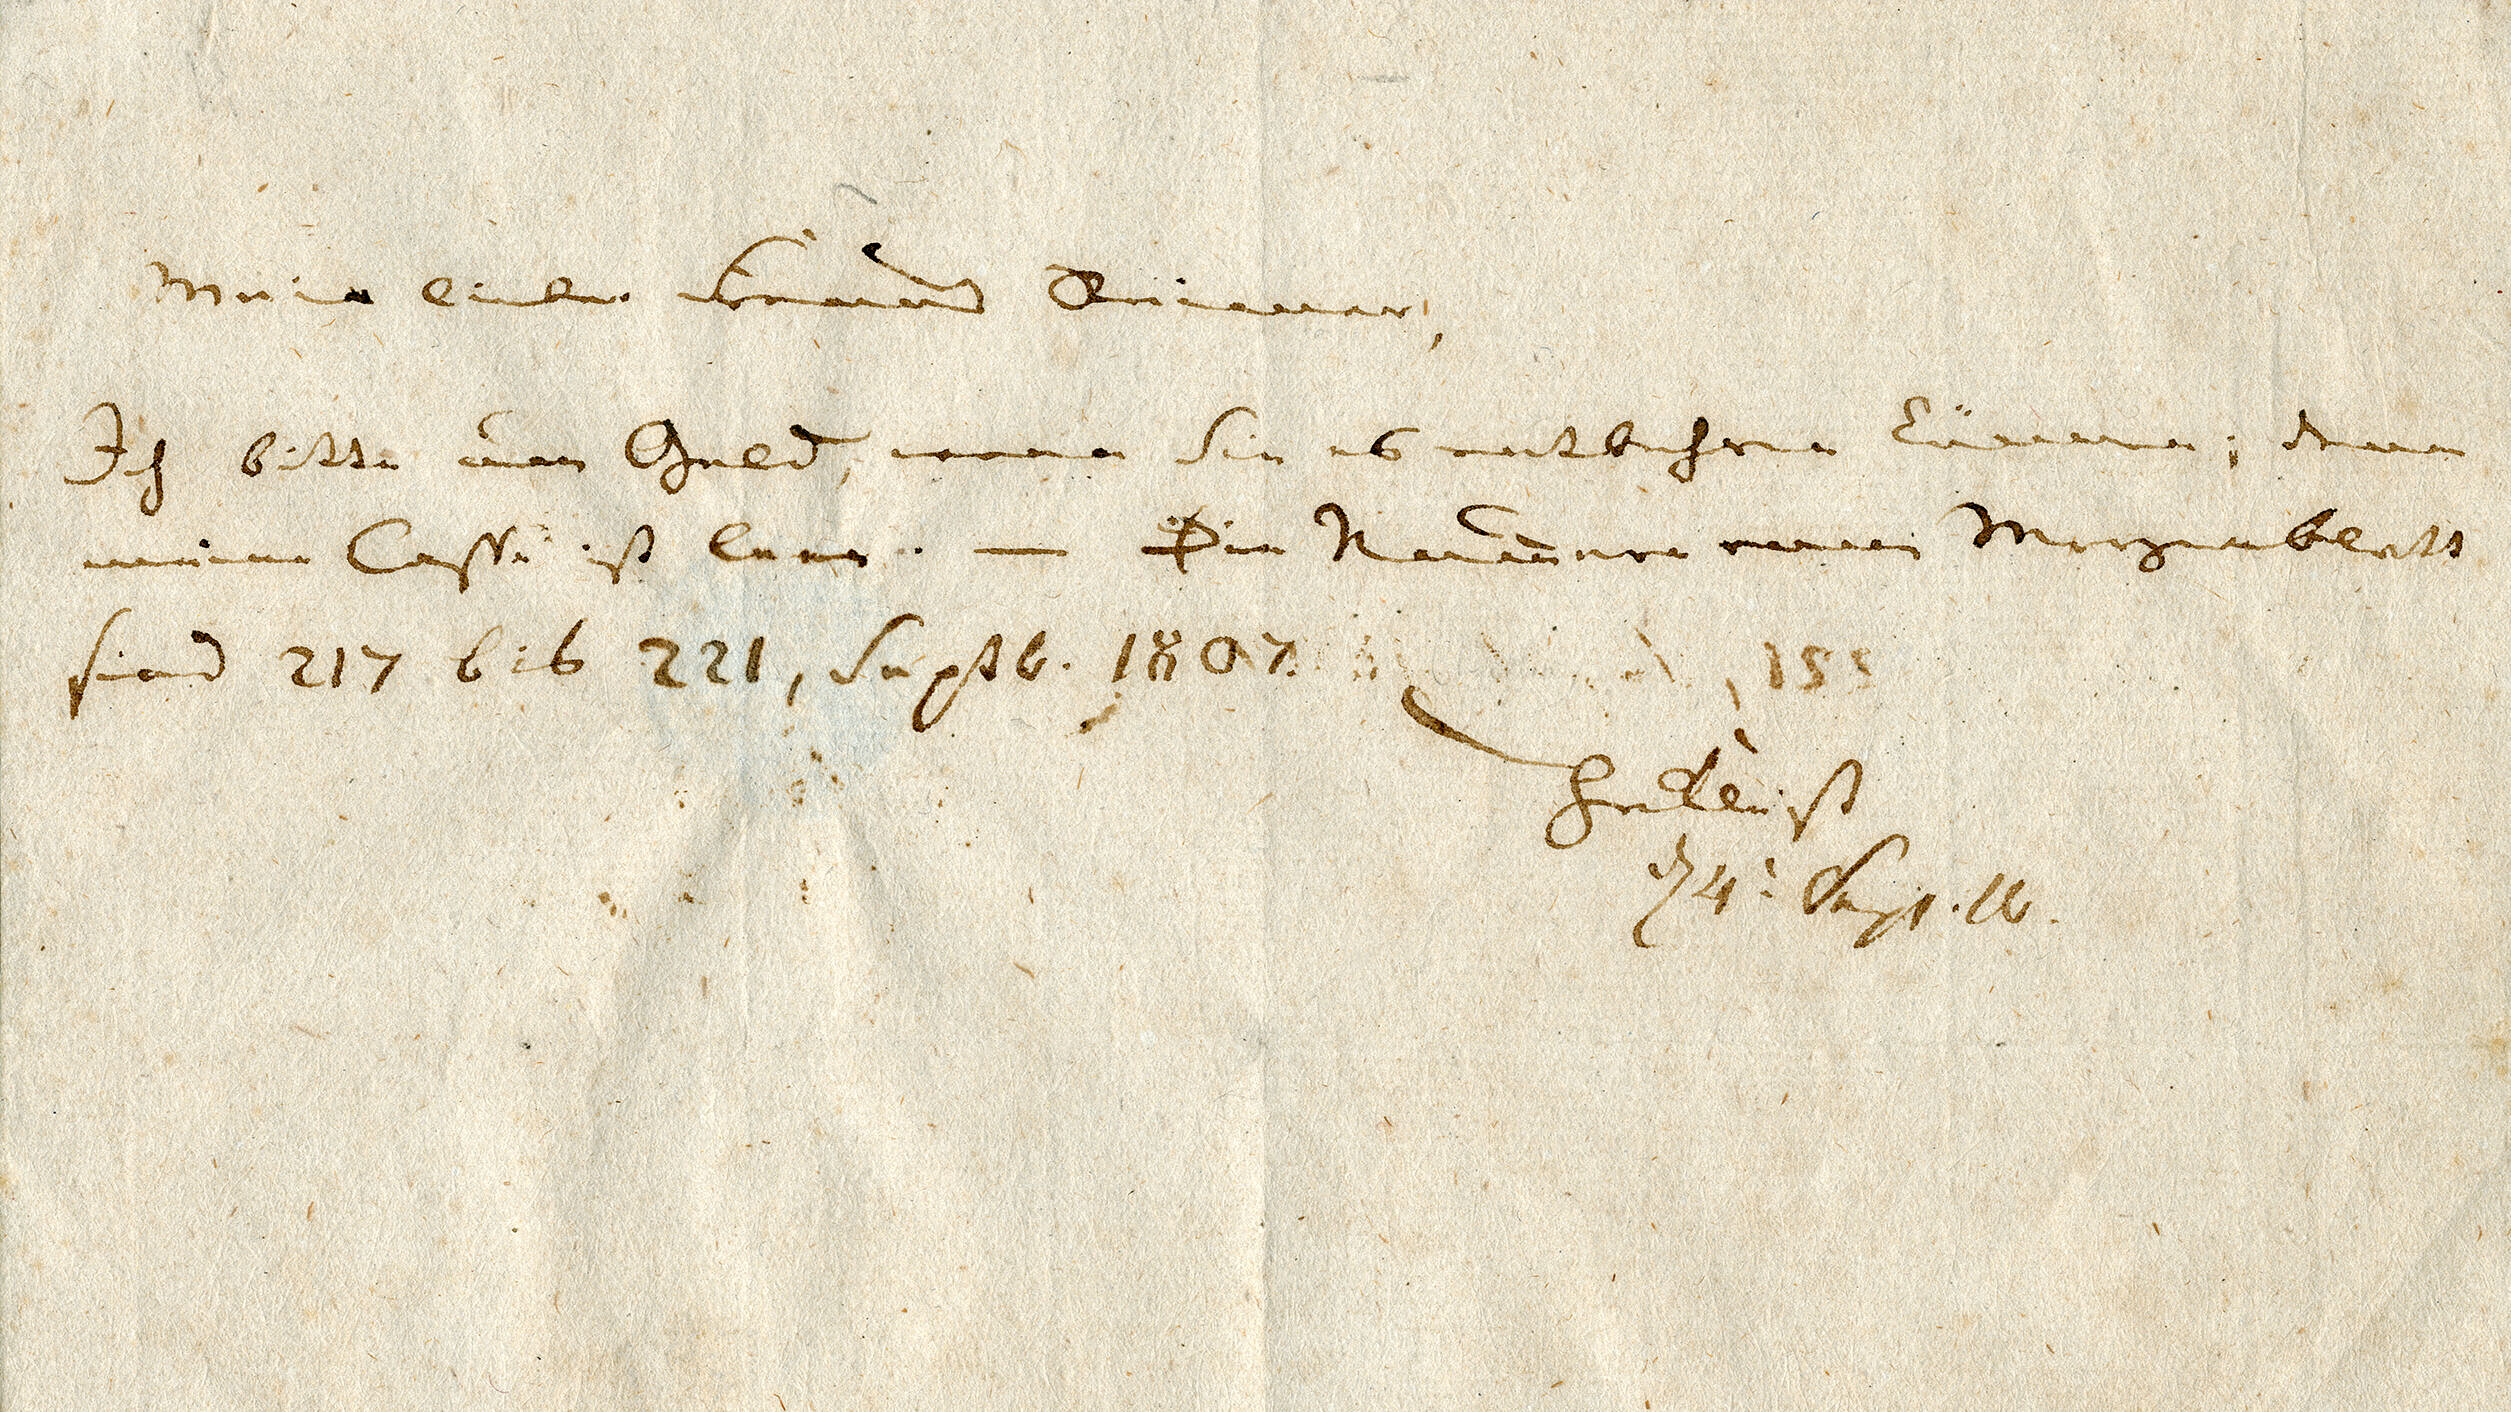 Mein lieber Freund Reimer,
Ich bitte um Geld, wenn Sie es entbehren können; denn
meine Casse ist leer. — Die Nummern vom Morgenblatt
sind 217 bis 221, Septb. 1807.
HvKleist
d 4t Sept. 10.